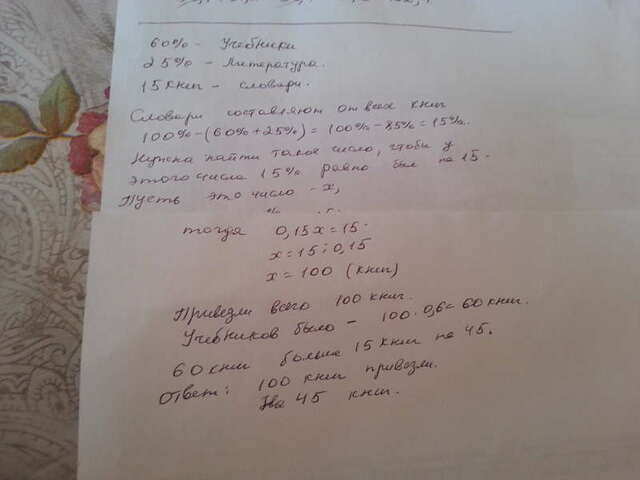 60% - Учебники
25% - Литература.
15 книг - словари.
Словари составляют от всех книг
100% - (60% + 25%) = 100% - 85% = 15%.
Нужно найти такое число, чтобы у
этого числа 15% равно был по 15.
Пусть это число - х,
тогда 0,15х = 15.
х = 15 : 0,15
х = 100 (книг)
Привезли всего 100 книг.
Учебников было - 100 · 0,6 = 60 книг.
60 книг больше 15 книг на 45.
Ответ: 100 книг привезли.
На 45 книг.